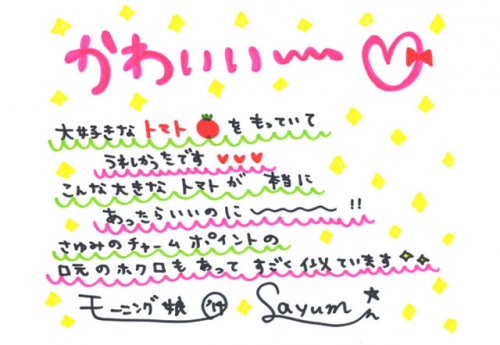 かわいいー
大好きなトマトをもっていて
うれしかったです
こんな大きなトマトが本当に
あったらいいのに〜!!
さゆみのチャームポイントの
口元のホクロもあってすごく似ています
モーニング娘 '14 Sayumiん